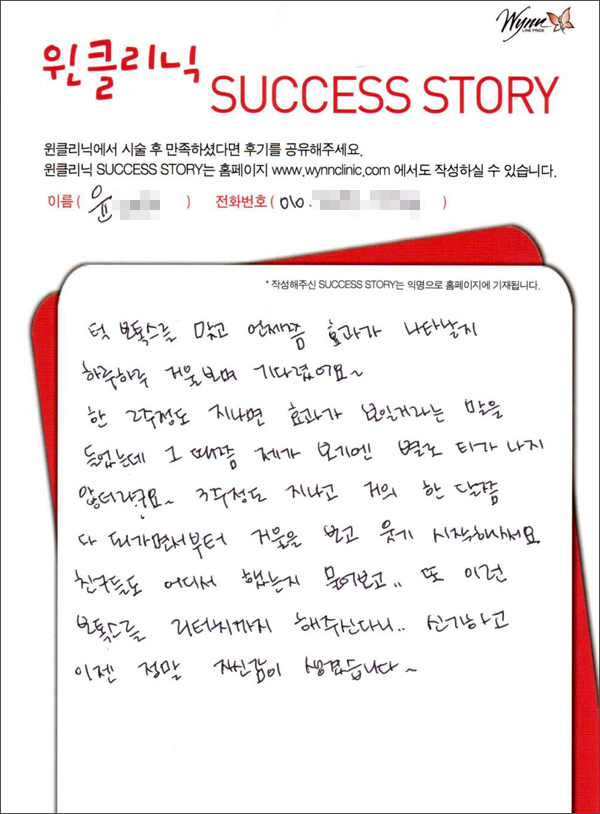 Wynn
LINE PRIDE
윈클리닉
SUCCESS STORY
윈클리닉에서 시술 후 만족하셨다면 후기를 공유해주세요.
윈클리닉 SUCCESS STORY는 홈페이지 www.wynnclinic.com 에서도 작성하실 수 있습니다.
이름 ( 윤 ) 전화번호 ( 010. )
* 작성해주신 SUCCESS STORY는 익명으로 홈페이지에 기재됩니다.
턱 보톡스를 맞고 언제쯤 효과가 나타날지
하루하루 거울보며 기다렸어요~
한 2주정도 지나면 효과가 보일거라는 말을
들었는데 그 때쯤 제가 보기엔 별로 티가 나지
않더라구요~ 3주정도 지나고 거의 한 달쯤
다 되가면서부터 거울을 보고 웃기 시작해서요
친구들도 어디서 했는지 물어보고.. 또 이런
보톡스를 리터치까지 해주신다니.. 신기하고
이젠 정말 자신감이 생겼습니다~